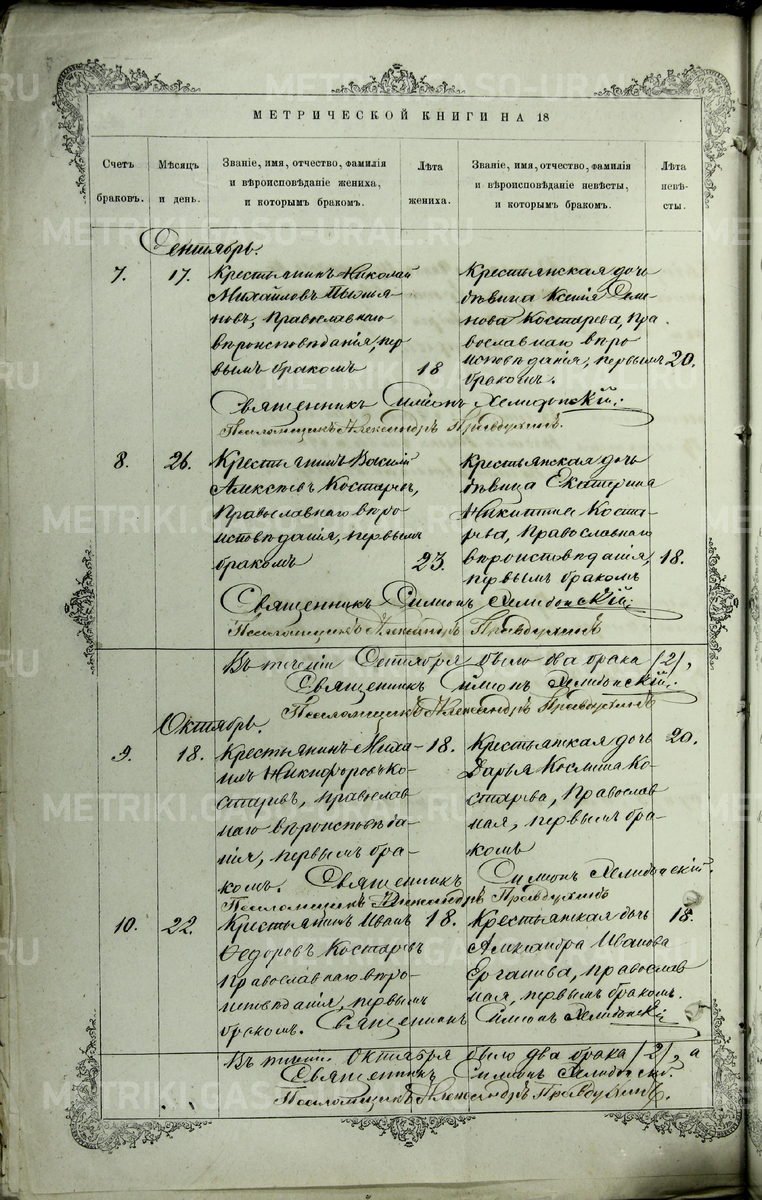 МЕТРИЧЕСКОЙ КНИГИ НА 18
Счетъ браковъ.
Мѣсяцъ и день.
Званіе, имя, отчество, фамилія и вѣроисповѣданіе жениха, и которымъ бракомъ.
Лѣта жениха.
Званіе, имя, отчество, фамилія и вѣроисповѣданіе невѣсты, и которымъ бракомъ.
Лѣта невѣсты.
Сентябрь.
7. 17. Крестьянинъ Николай
Михайловъ
новъ, Православнаго
вѣроисповѣданія, пер
вымъ бракомъ 18
Крестьянская дочь
дѣвица Ксенія
нова Костарева, Пра
вославнаго вѣро
исповѣданія, первымъ 20.
бракомъ.
Священникъ Симеонъ Хелидонскій.
Псаломщикъ Александръ Правдухинъ.
8. 26. Крестьянинъ Василій
Алексѣевъ Костаревъ,
Православнаго вѣро
исповѣданія, первымъ
бракомъ 23.
Крестьянская дочь
дѣвица Екатерина
Никитина Коста
рева, Православнаго
вѣроисповѣданія, 18.
первымъ бракомъ
Священникъ Симеонъ Хелидонскій.
Псаломщикъ Александръ Правдухинъ
Въ теченіи Сентября было два брака (2),
Священникъ Симеонъ Хелидонскій.
Псаломщикъ Александръ Правдухинъ
Октябрь.
9. 18. Крестьянинъ Миха- 18.
илъ Никифоровъ Ко-
старевъ, Православ
наго вѣроисповѣда-
нія, первымъ бра-
комъ.
Крестьянская дочь 20.
Дарья Космина Ко-
старева, Православ
ная, первымъ бра-
комъ
Священникъ Симеонъ Хелидонскій.
Псаломщикъ Александръ Правдухинъ
10. 22. Крестьянинъ Иванъ 18.
Ѳедоровъ Костаревъ
Православнаго вѣро-
исповѣданія, первымъ
бракомъ.
Крестьянская дочь 18.
Александра Иванова
православ
ная, первымъ бракомъ.
Священникъ Симеонъ Хелидонскій
Въ теченіи Октября было два брака (2), а
Священникъ Симеонъ Хелидонскій
Псаломщикъ Александръ Правдухинъ.
METRIKI.GASO-URAL.RU